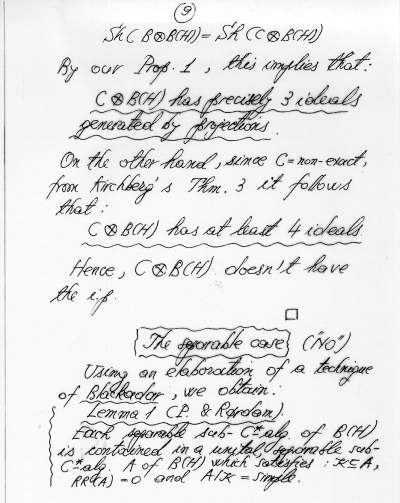 9
Sh(B⊗B(H)) = Sh(C⊗B(H))
By our Prop. 1, this implies that:
C⊗B(H) has precisely 3 ideals
generated by projections.
On the other hand, since C = non-exact,
from Kirchberg's Thm. 3 it follows
that:
C⊗B(H) has at least 4 ideals
Hence, C⊗B(H) doesn't have
the i.p.
□
The separable case ("NO")
Using an elaboration of a technique
of Blackadar, we obtain:
Lemma 1 (P. & Rørdam).
Each separable sub-C*-alg. of B(H)
is contained in a unital separable sub-
C*-alg. A of B(H) which satisfies: K⊆A,
RR(A)=0 and A/K = simple.